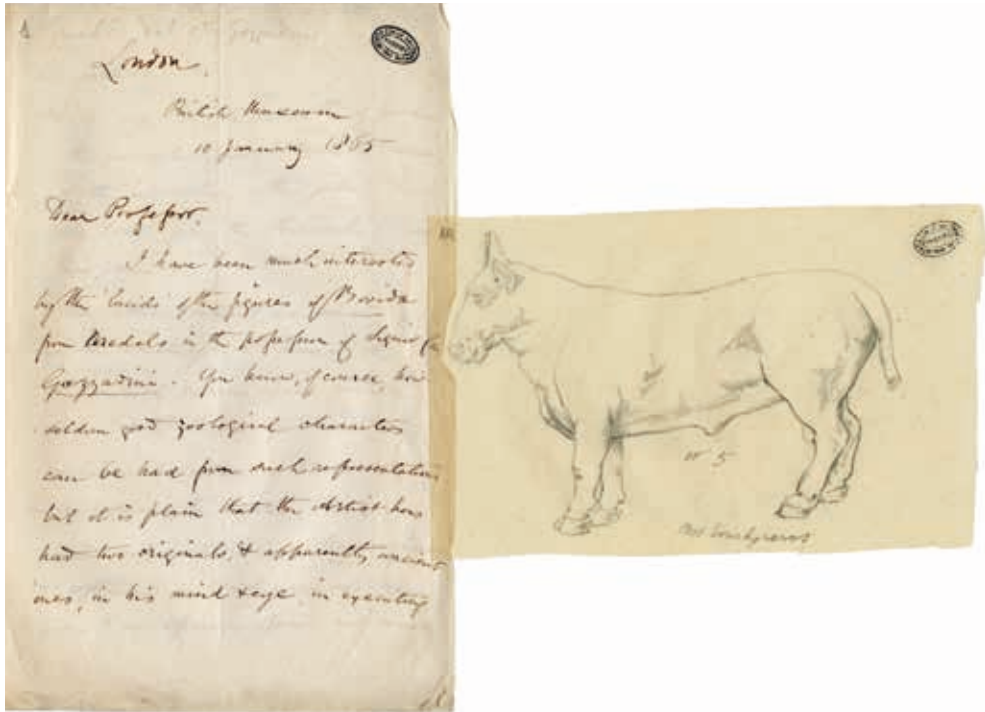 London.
British Museum
10 January 1865
Dear Professor,
I have been much interested
by the 'lucids' of the figures of Bovidæ
from in the possession of Signor
Gozzadini. You know, of course, how
seldom good zoological characters
can be had from such representations
but it is plain that the Artist has
had two originals, & apparently ancient
ones, in his mind & eye in executing
No 5
Bos brachyceros